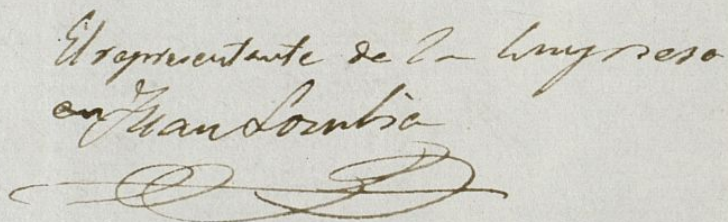 El representante de la Empresa
Juan Lombia